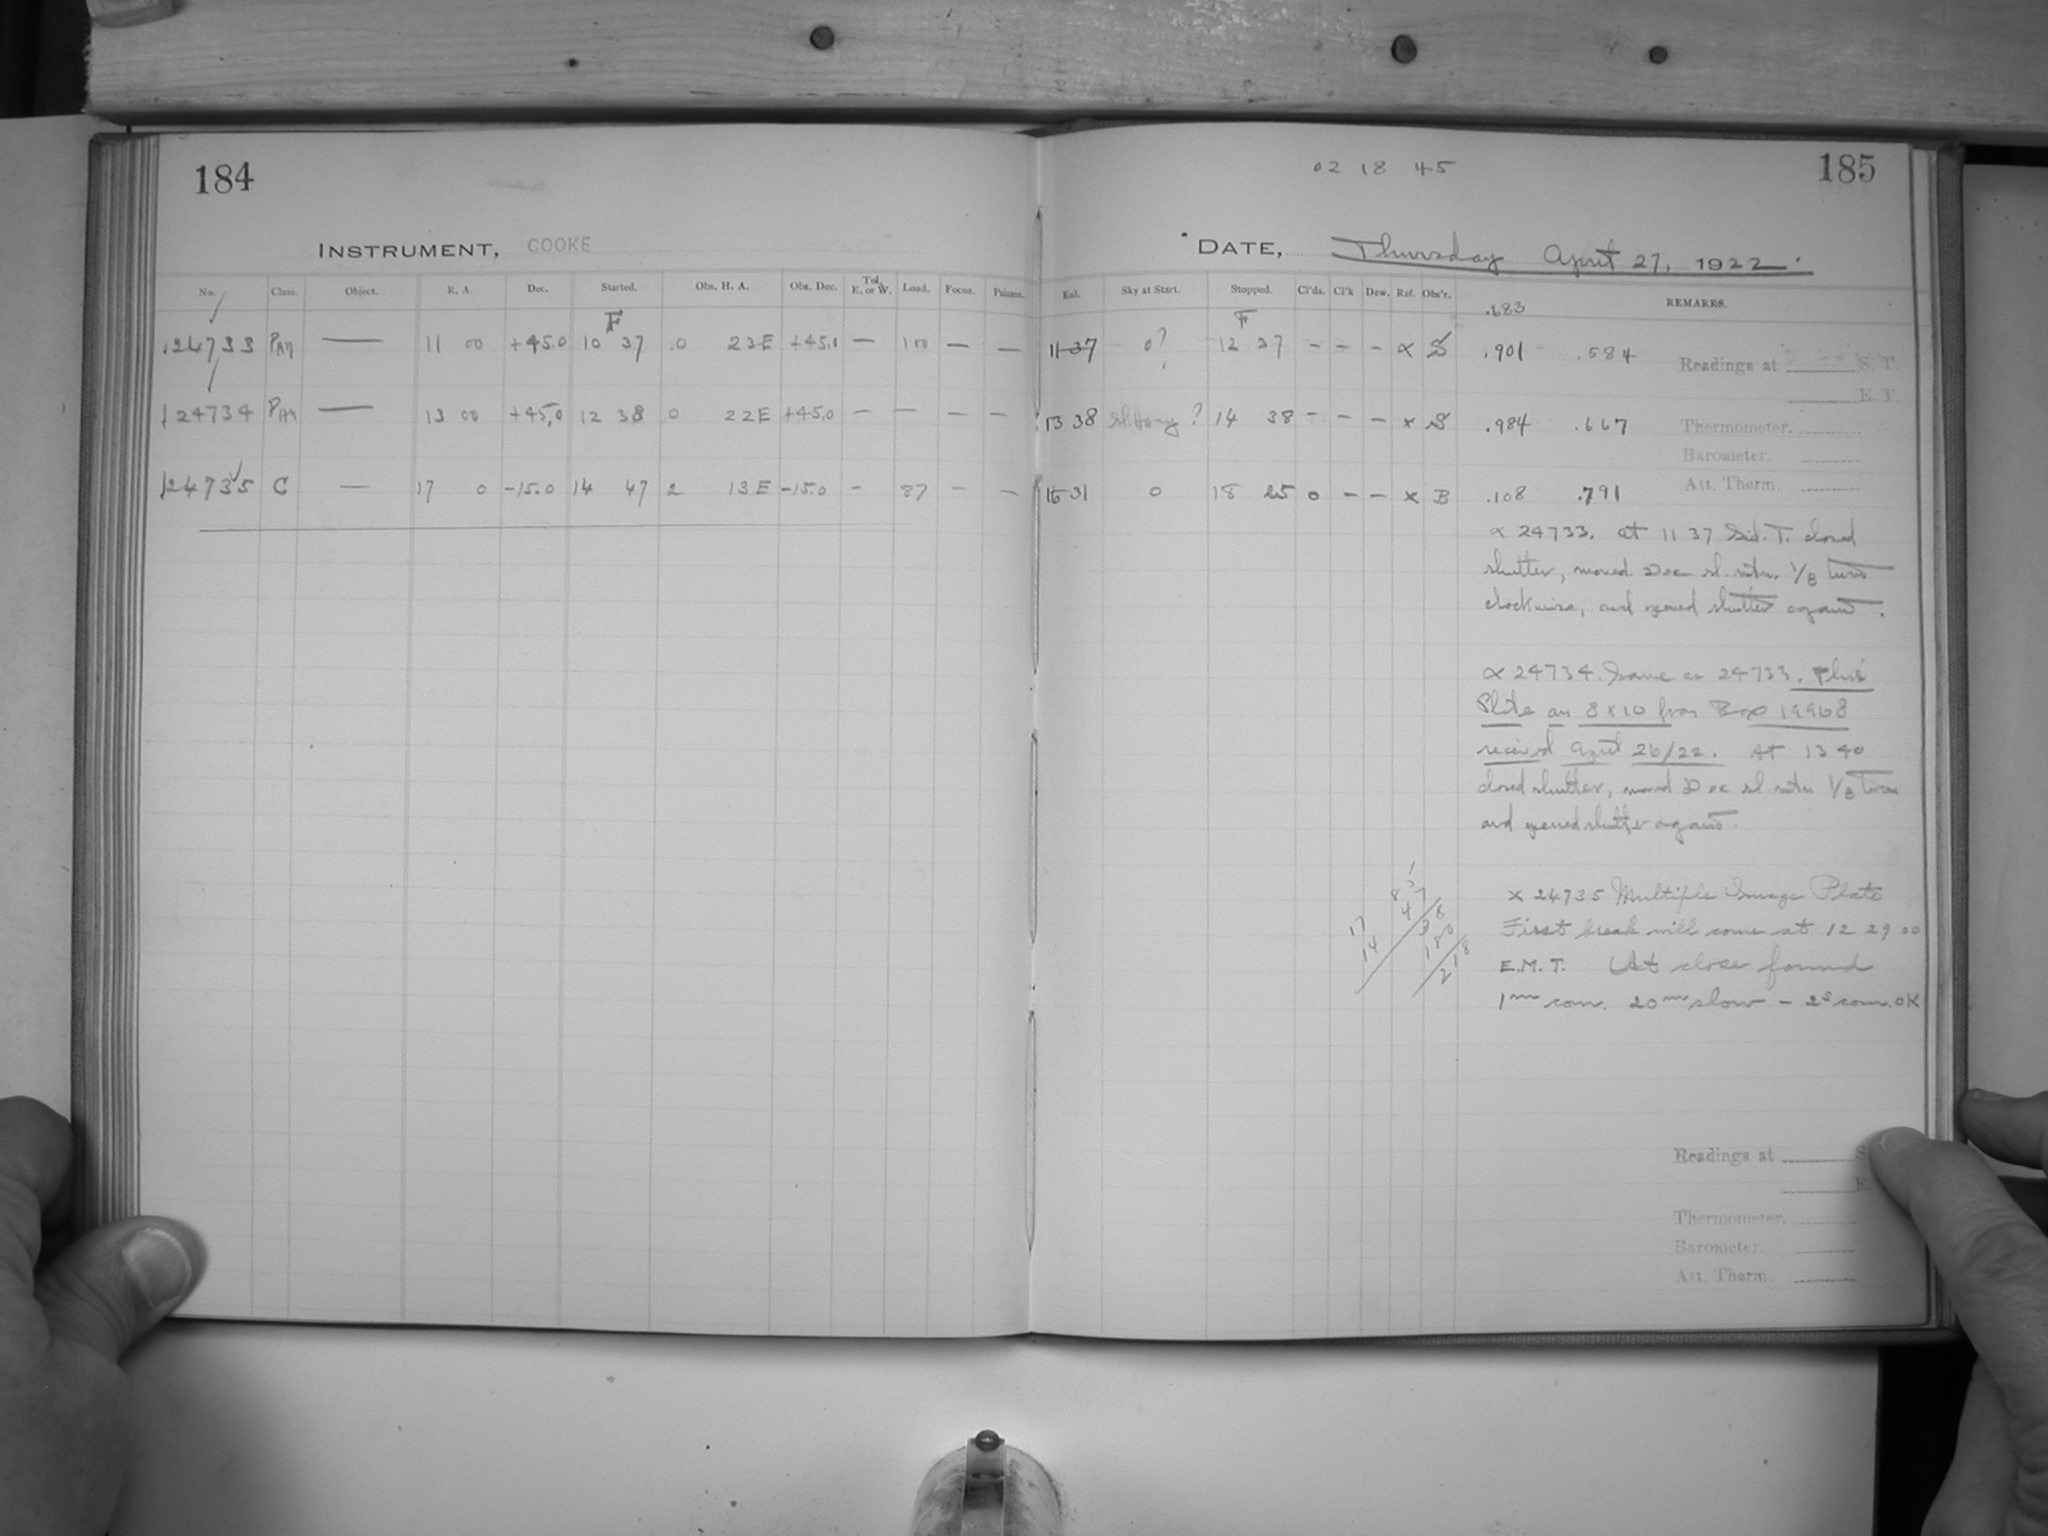 184
INSTRUMENT, COOKE
No. Class. Object. R. A. Dec. Started. Obs. H. A. Obs. Dec. Tel. E. or W. Load. Focus. Prisms.
F
24733 Pan — 11 00 +45.0 10 37 0 23E +45.0 — 100 — —
24734 Pan — 13 00 +45.0 12 38 0 22E +45.0 — — — —
24735 C — 17 0 -15.0 14 47 2 13E -15.0 — 87 — —
02 18 45
185
DATE, Thursday April 27, 1922.
Eal. Sky at Start. Stopped. Cl'ds. Cl'k Dew. Ref. Obs'r. REMARKS.
.683
F
11 37 0? 12 37 — — — ∝ S .901 .584
Readings at S. T.
E. T.
13 38 Sl. Hazy ? 14 38 — — — x S .984 .667
Thermometer.
Barometer.
Att. Therm.
16 31 0 18 25 0 — — x B .108 .791
∝ 24733. At 11 37 Sid. T. closed
shutter, moved Dec sl. mtn. 1/8 turn
clockwise, and opened shutter again.
∝ 24734. Same as 24733. This
Plate an 8x10 from Box 19968
received April 26/22. At 13 40
closed shutter, moved Dec sl mtn 1/8 turn
and opened shutter again.
x 24735 Multiple Image Plate
First break will come at 12 29 00
E.M.T. At close found
1mm com. 20mm slow – 2s com. OK
17
14
8 57
4 38
180
218
Readings at S
E
Thermometer.
Barometer.
Att. Therm.